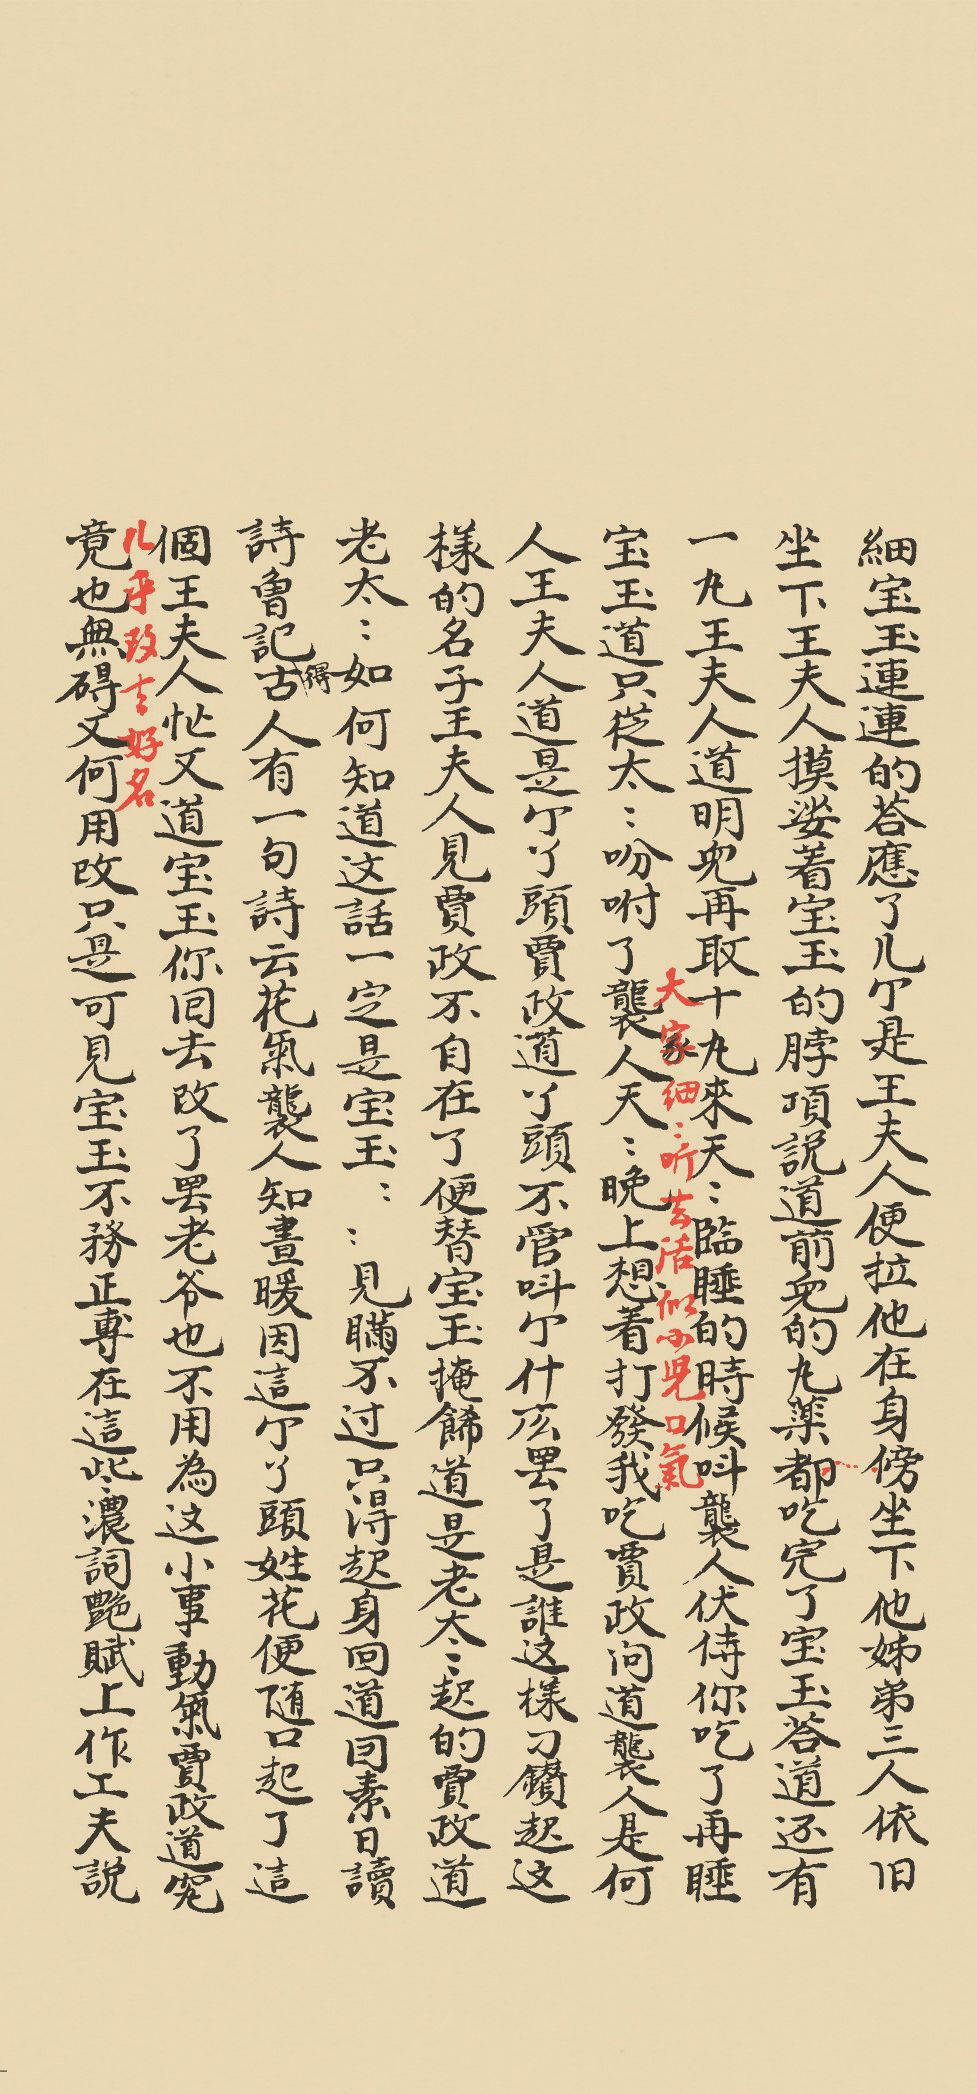 細宝玉連連的荅應了几个是王夫人便拉他在身傍坐下他姊弟三人依旧
坐下王夫人摸娑着宝玉的脖項説道前兒的丸薬都吃完了宝玉荅道还有
一丸王夫人道明兒再取十丸來天〻臨睡的時候呌襲人伏侍你吃了再睡
大家細〻听去活似小児口氣
宝玉道只從太〻吩咐了襲人天〻晩上想着打發我吃賈政问道襲人是何
人王夫人道是个丫頭賈政道丫頭不管呌个什広罢了是誰这樣刁鑽起这
樣的名子王夫人見賈政不自在了便替宝玉掩餙道是老太〻起的賈政道
老太〻如何知道这話一定是宝玉〻〻見瞞不过只得起身回道因素日讀
詩魯記得古人有一句詩云花氣襲人知晝暖因這个丫頭姓花便随口起了這
個王夫人忙又道宝玉你囘去改了罢老爷也不用為这小事動氣賈政道究
几乎改去好名
竟也無碍又何用改只是可見宝玉不務正専在這些濃詞艶賦上作工夫説